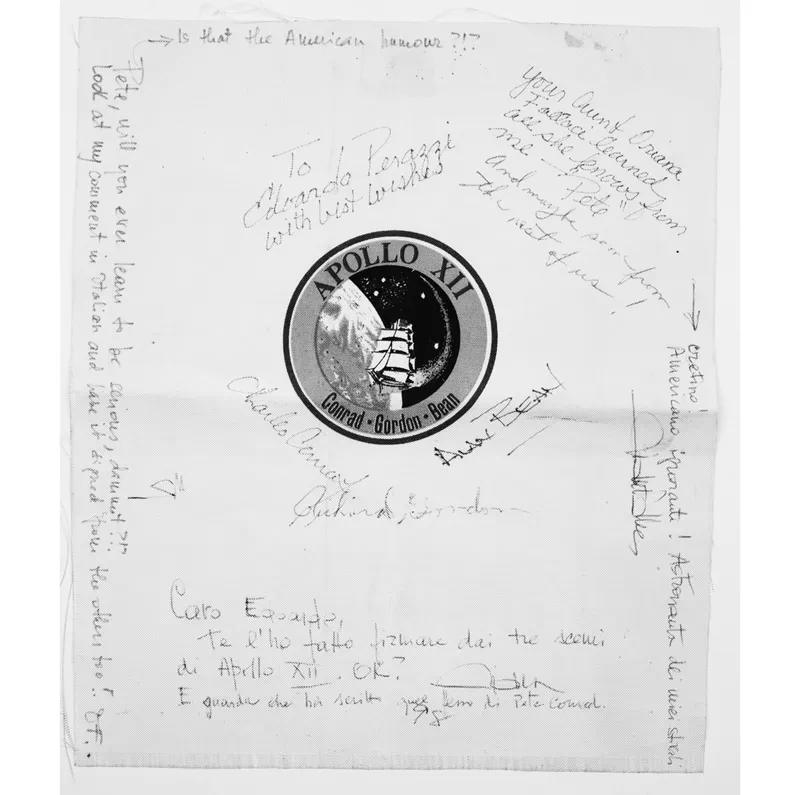 → Is that the American humour?!?
Pete, will you ever learn to be serious, dammit?!?
Look at my comment in Italian and have it signed from the others too!! OF.
To
Edoardo Perazzi
with best wishes
Your Aunt Oriana
Fallaci learned
all she knows from
me — Pete"
and maybe som from
the rest of us!
APOLLO XII
Conrad · Gordon · Bean
Charles Conrad
Alan Bean
Richard Gordon
→ cretino!
Americano ignorante! Astronauta dei miei stivali
Caro Edoardo,
Te l'ho fatto firmare dai tre scemi
di Apollo XII. OK?
E guarda che ha scritto scemo di Pete Conrad.